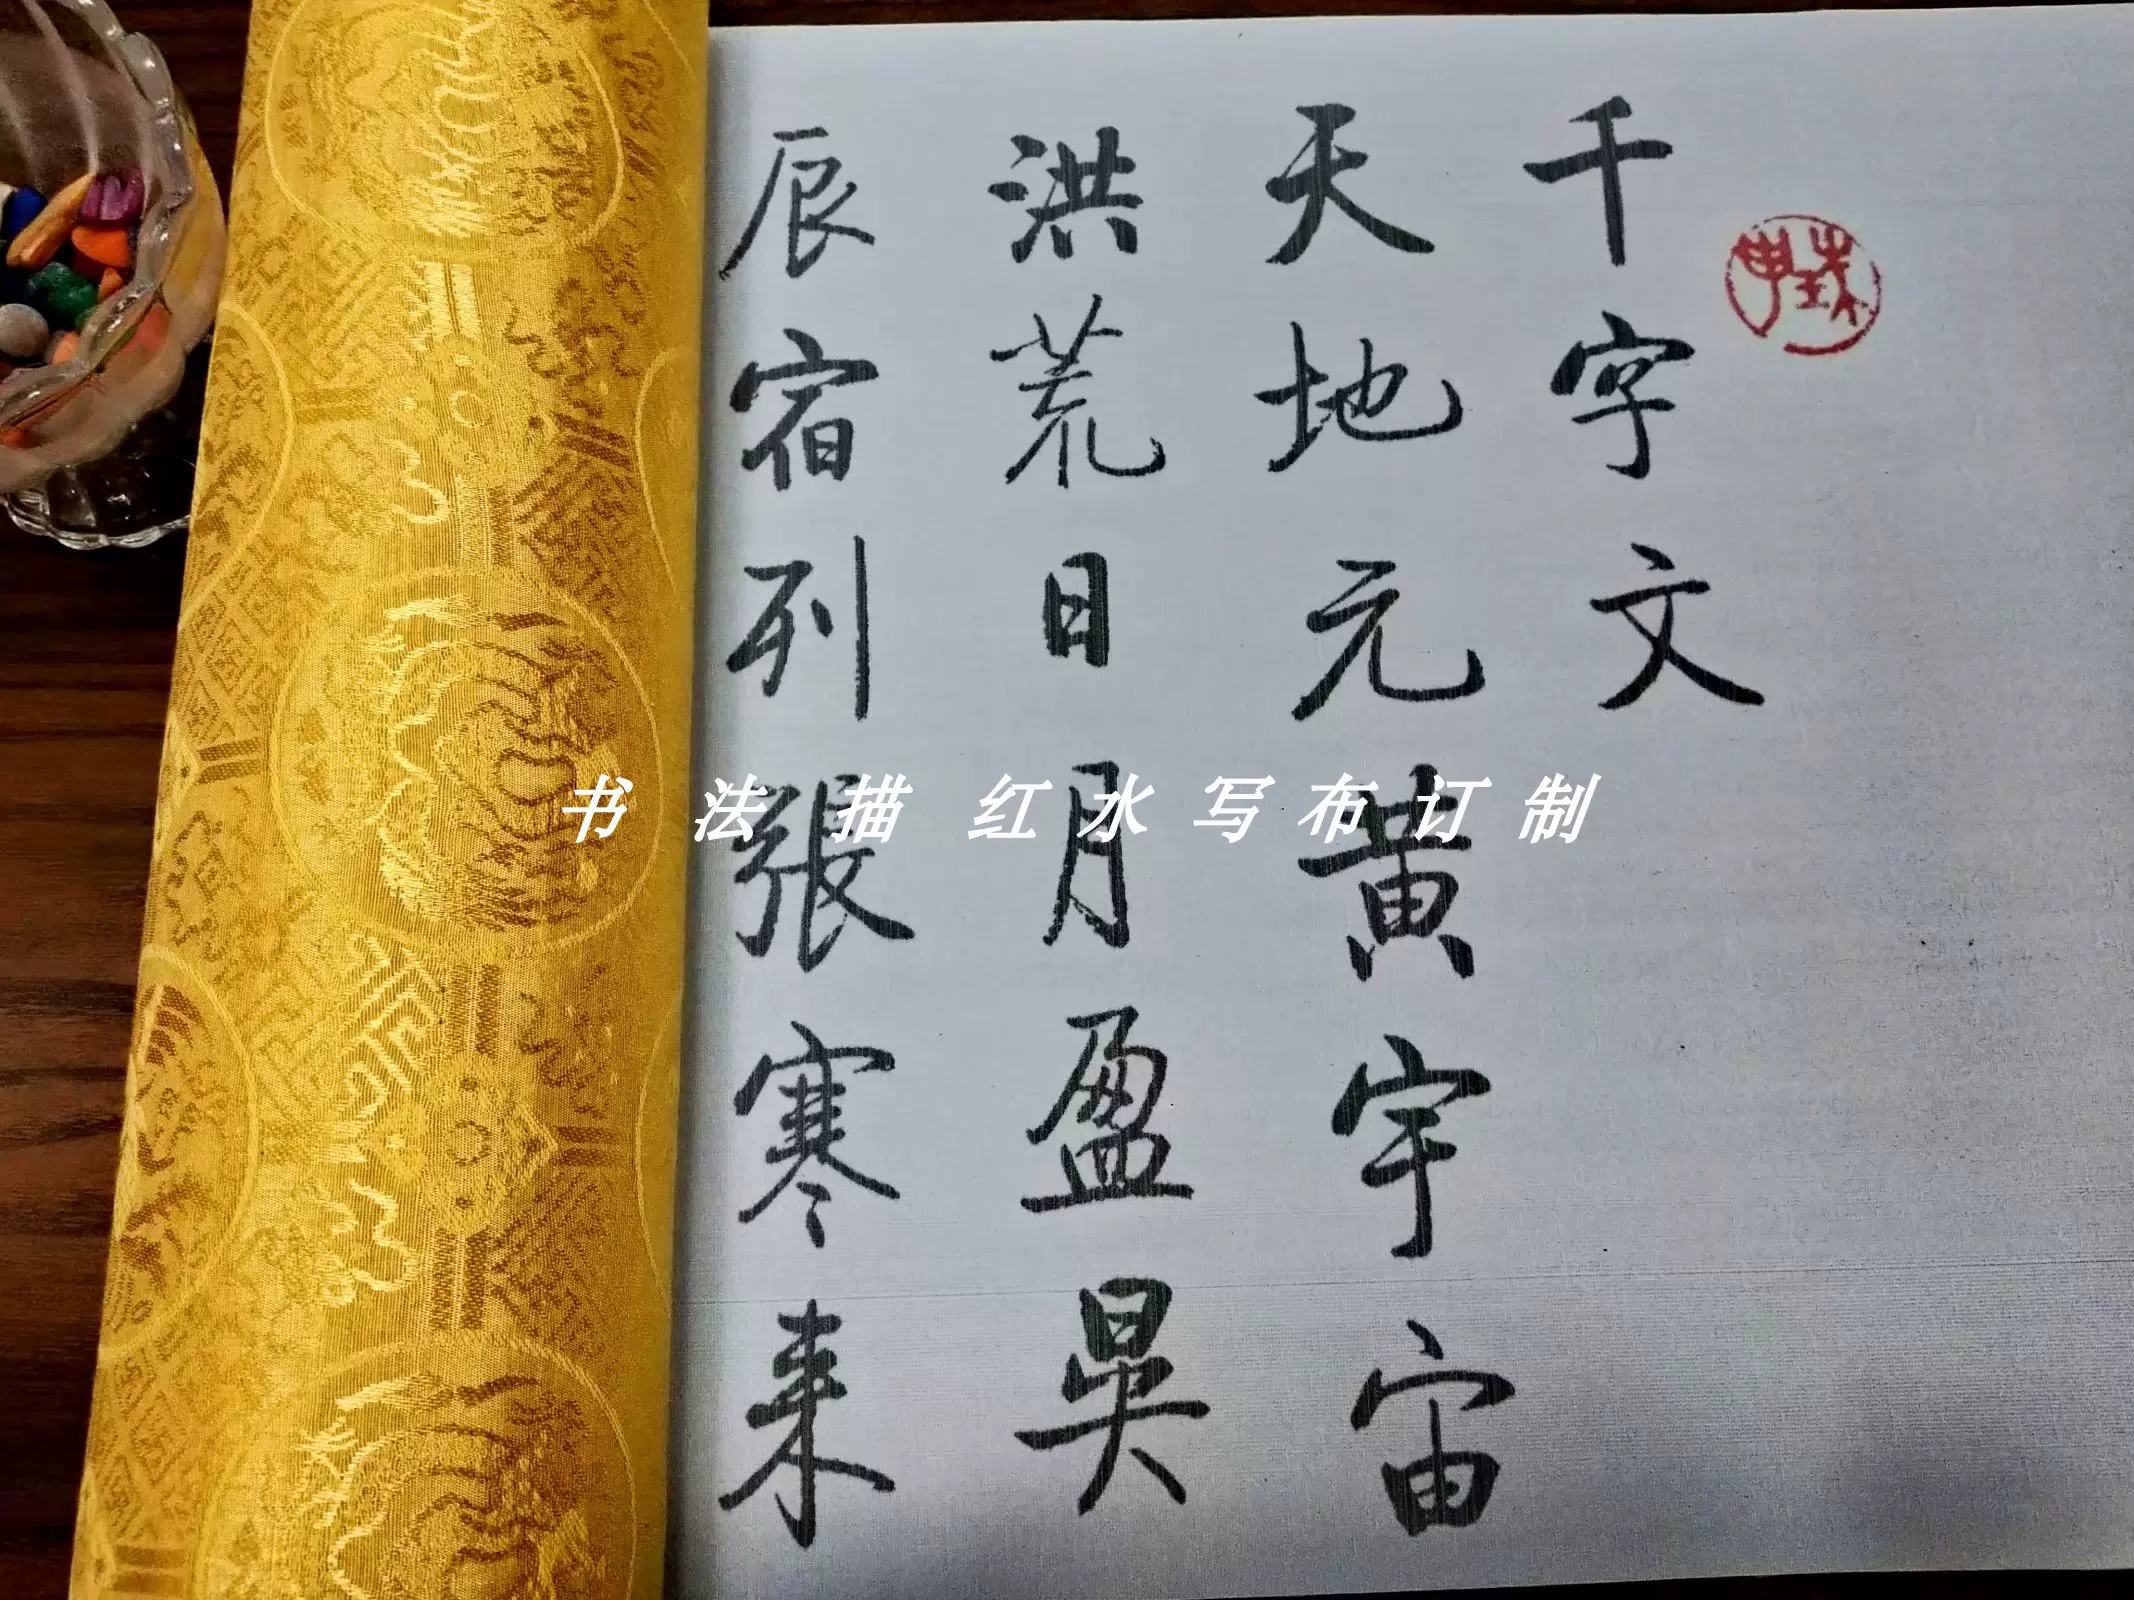 千字文
天地元黄宇宙
洪荒日月盈昃
辰宿列張寒来
书法描红水写布订制